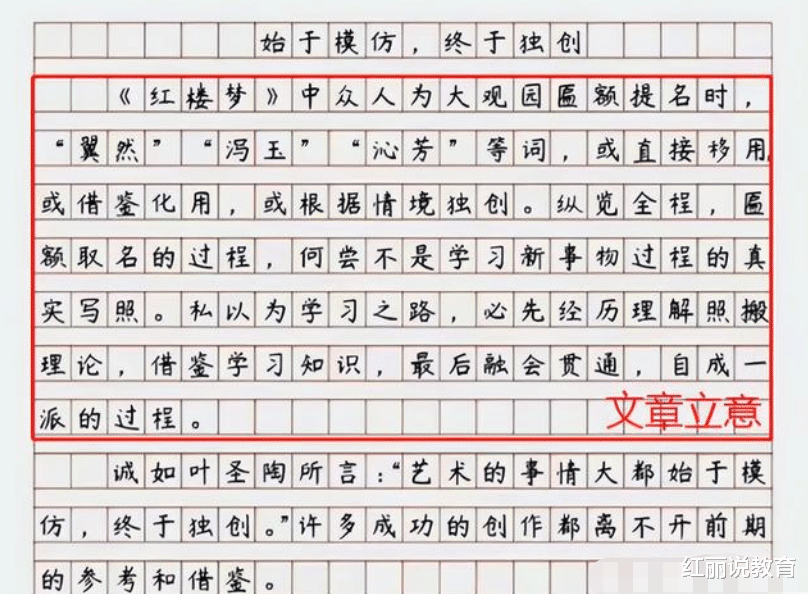 始于模仿，终于独创
《红楼梦》中众人为大观园匾额提名时，
“翼然”“泻玉”“沁芳”等词，或直接移用
或借鉴化用，或根据情境独创。纵览全程，匾
额取名的过程，何尝不是学习新事物过程的真
实写照。私以为学习之路，必先经历理解照搬
理论，借鉴学习知识，最后融会贯通，自成一
派的过程。
文章立意
诚如叶圣陶所言：“艺术的事情大都始于模
仿，终于独创。”许多成功的创作都离不开前期
的参考和借鉴。
红丽说教育